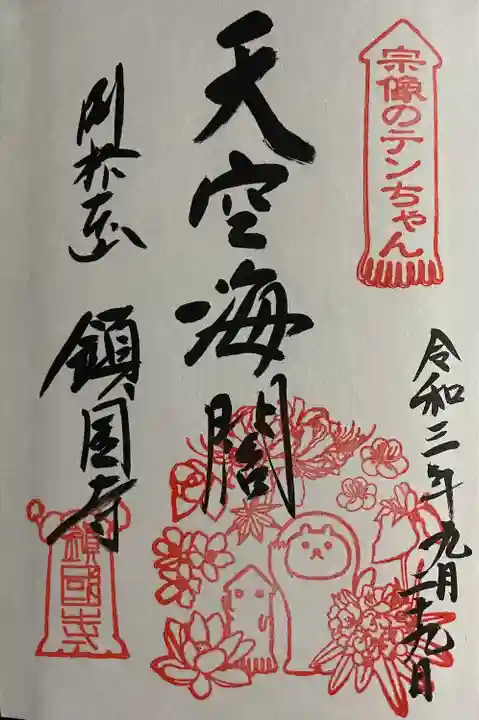 宗像のテンちゃん
令和三年九月二十九日
天空海閣
別格本山
鎮国寺